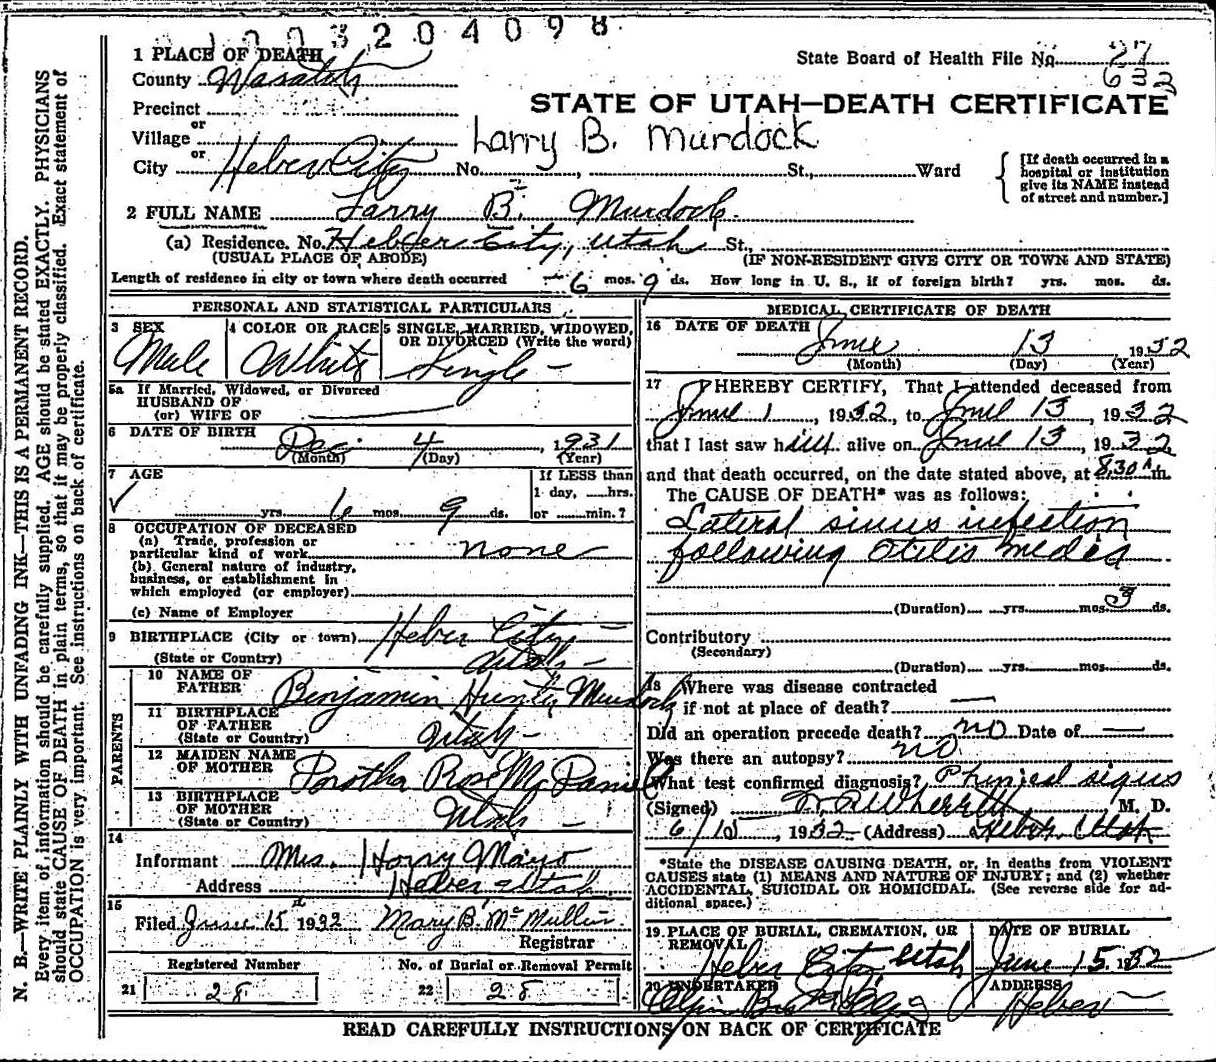 1003204098
1 PLACE OF DEATH
State Board of Health File No. 27
County Wasatch
632
Precinct
STATE OF UTAH—DEATH CERTIFICATE
or
Village
Larry B. Murdock
or
City Heber City No. , St., Ward
[If death occurred in a hospital or institution give its NAME instead of street and number.]
2 FULL NAME Larry B. Murdock.
(a) Residence. No. Heber City, Utah St.,
(USUAL PLACE OF ABODE) (IF NON-RESIDENT GIVE CITY OR TOWN AND STATE)
Length of residence in city or town where death occurred - 6 mos. 9 ds. How long in U. S., if of foreign birth? yrs. mos. ds.
PERSONAL AND STATISTICAL PARTICULARS
3 SEX 4 COLOR OR RACE 5 SINGLE, MARRIED, WIDOWED, OR DIVORCED (Write the word)
Male White Single -
5a If Married, Widowed, or Divorced
HUSBAND OF
(or) WIFE OF
6 DATE OF BIRTH Dec. 4, 1931
(Month) (Day) (Year)
7 AGE
If LESS than
1 day, hrs.
yrs. 6 mos. 9 ds. or min.?
8 OCCUPATION OF DECEASED
(a) Trade, profession or
particular kind of work none
(b) General nature of industry,
business, or establishment in
which employed (or employer)
(c) Name of Employer
9 BIRTHPLACE (City or town) Heber City -
(State or Country) Utah -
PARENTS
10 NAME OF FATHER Benjamin Hunter Murdock
11 BIRTHPLACE OF FATHER
(State or Country) Utah -
12 MAIDEN NAME OF MOTHER Rose McDaniel
13 BIRTHPLACE OF MOTHER
(State or Country) Utah -
14
Informant Mrs. Harry Mayo
Address Heber, Utah
15
Filed June 15 1932 Mary B. McMullin
Registrar
Registered Number No. of Burial or Removal Permit
21 28 22 28
MEDICAL CERTIFICATE OF DEATH
16 DATE OF DEATH June 13 1932
(Month) (Day) (Year)
17 I HEREBY CERTIFY, That I attended deceased from
June 1, 1932, to June 13, 1932
that I last saw him alive on June 13, 1932
and that death occurred, on the date stated above, at 8:30 A m.
The CAUSE OF DEATH* was as follows:
Lateral sinus infection
following Otitis media
(Duration) yrs. mos. 3 ds.
Contributory
(Secondary)
(Duration) yrs. mos. ds.
18 Where was disease contracted
if not at place of death? —
Did an operation precede death? no Date of —
Was there an autopsy? no
What test confirmed diagnosis? Physical signs
(Signed) Wherritt, M. D.
1932 (Address) Heber, Utah
*State the DISEASE CAUSING DEATH, or, in deaths from VIOLENT
CAUSES state (1) MEANS AND NATURE OF INJURY; and (2) whether
ACCIDENTAL, SUICIDAL OR HOMICIDAL. (See reverse side for additional space.)
19. PLACE OF BURIAL, CREMATION, OR REMOVAL DATE OF BURIAL
Heber City, Utah June 15, 1932
20 UNDERTAKER ADDRESS
Heber -
READ CAREFULLY INSTRUCTIONS ON BACK OF CERTIFICATE
N. B.—WRITE PLAINLY WITH UNFADING INK—THIS IS A PERMANENT RECORD.
Every item of information should be carefully supplied. AGE should be stated EXACTLY. PHYSICIANS
should state CAUSE OF DEATH in plain terms, so that it may be properly classified. Exact statement of
OCCUPATION is very important. See instructions on back of certificate.